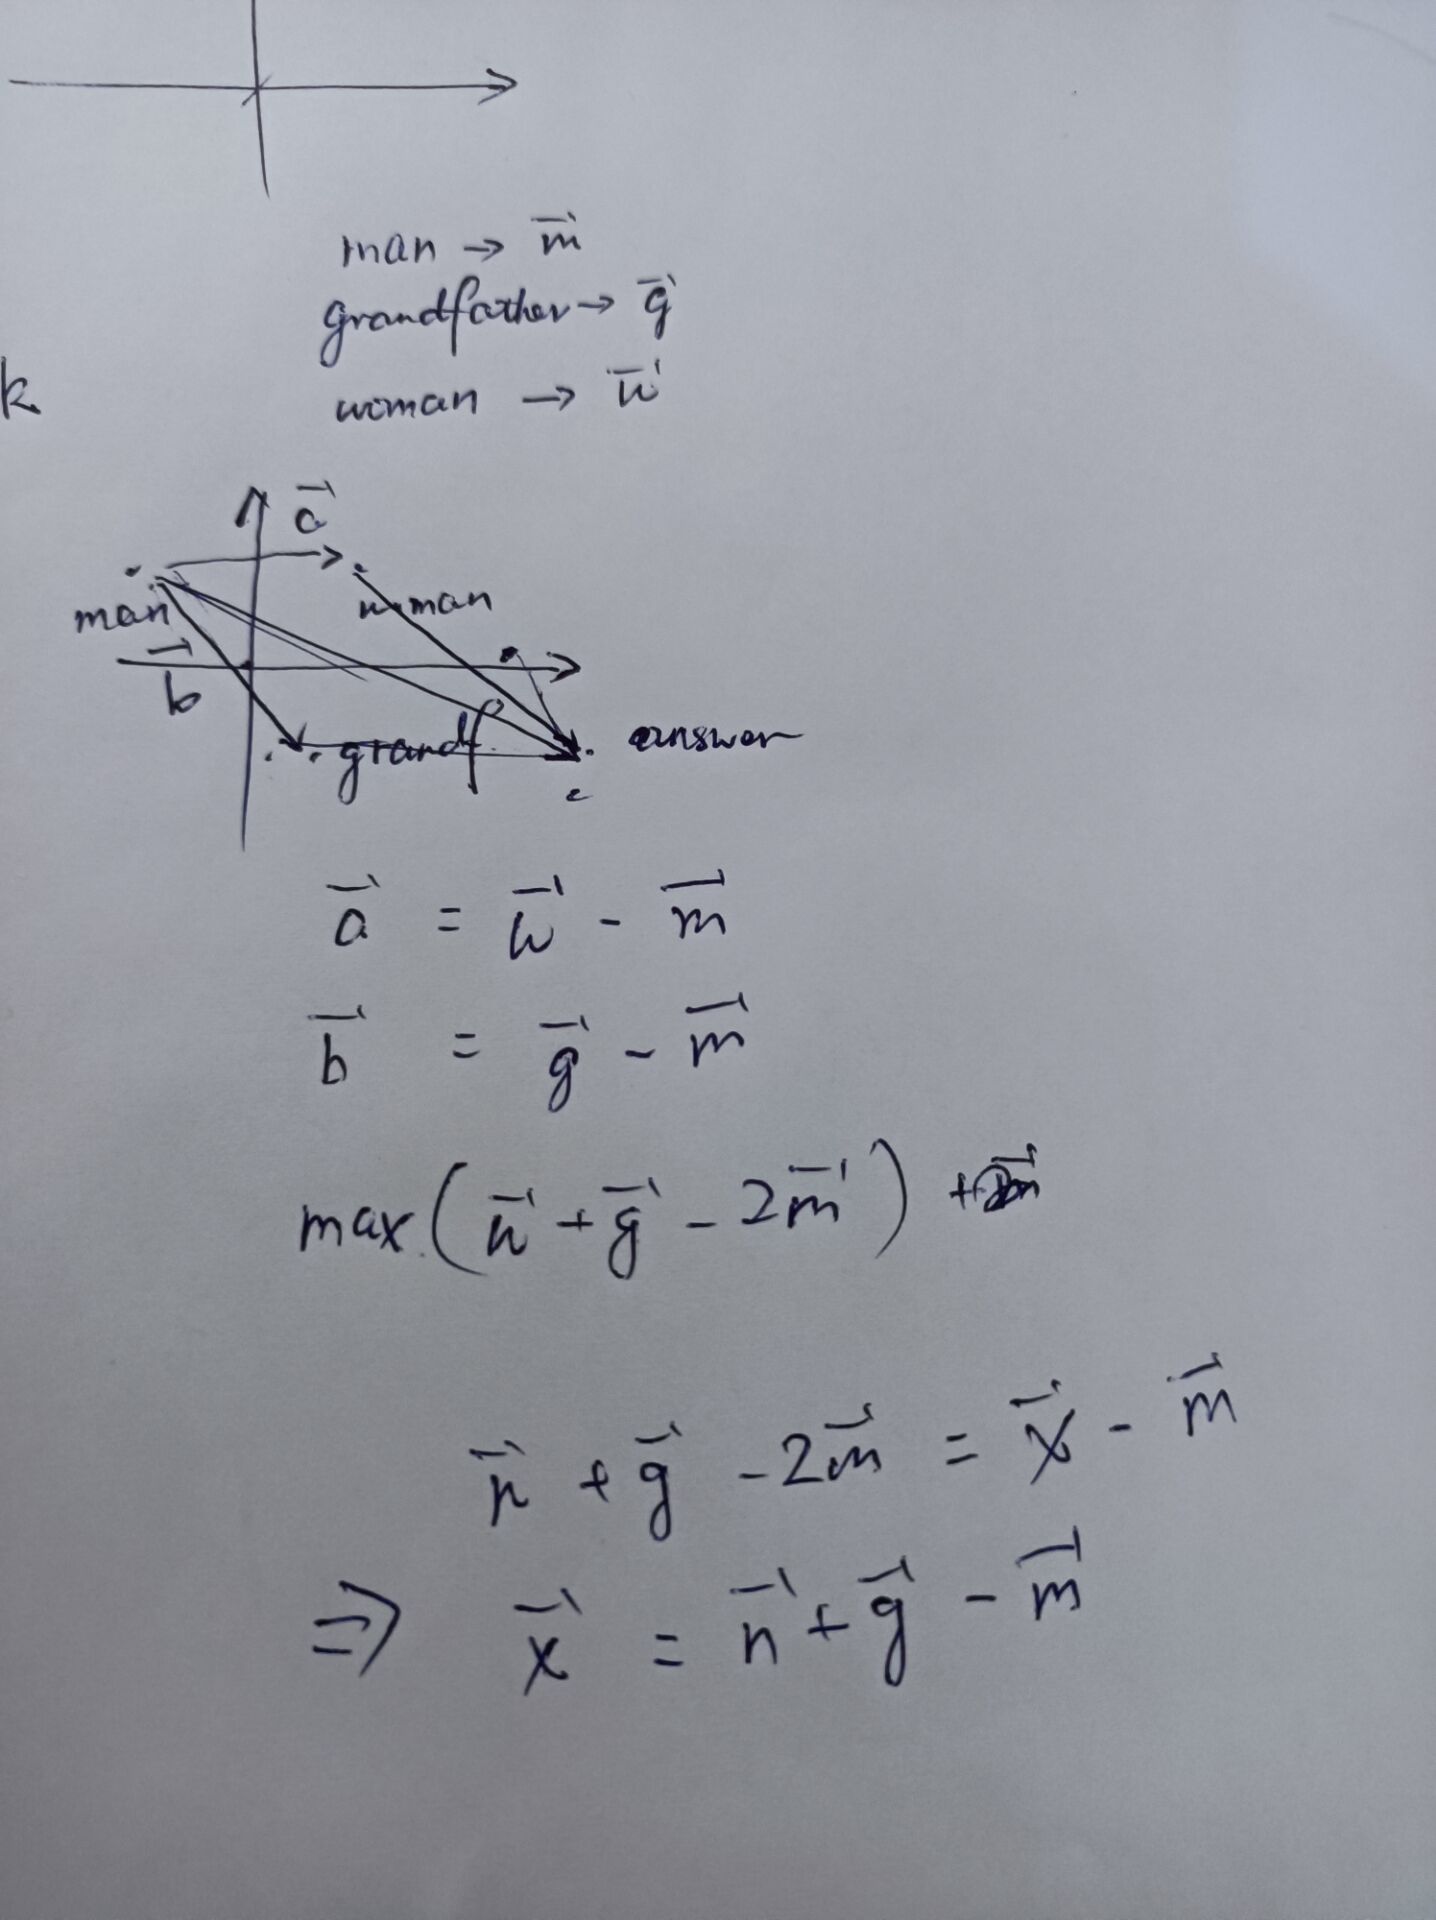 man → m⃗
grandfather → g⃗
k
woman → w⃗
a⃗
man
woman
b⃗
grandf.
answer
c
a⃗ = w⃗ - m⃗
b⃗ = g⃗ - m⃗
max. (w⃗ + g⃗ - 2m⃗) +
n⃗ + g⃗ - 2m⃗ = x⃗ - m⃗
⇒ x⃗ = n⃗ + g⃗ - m⃗